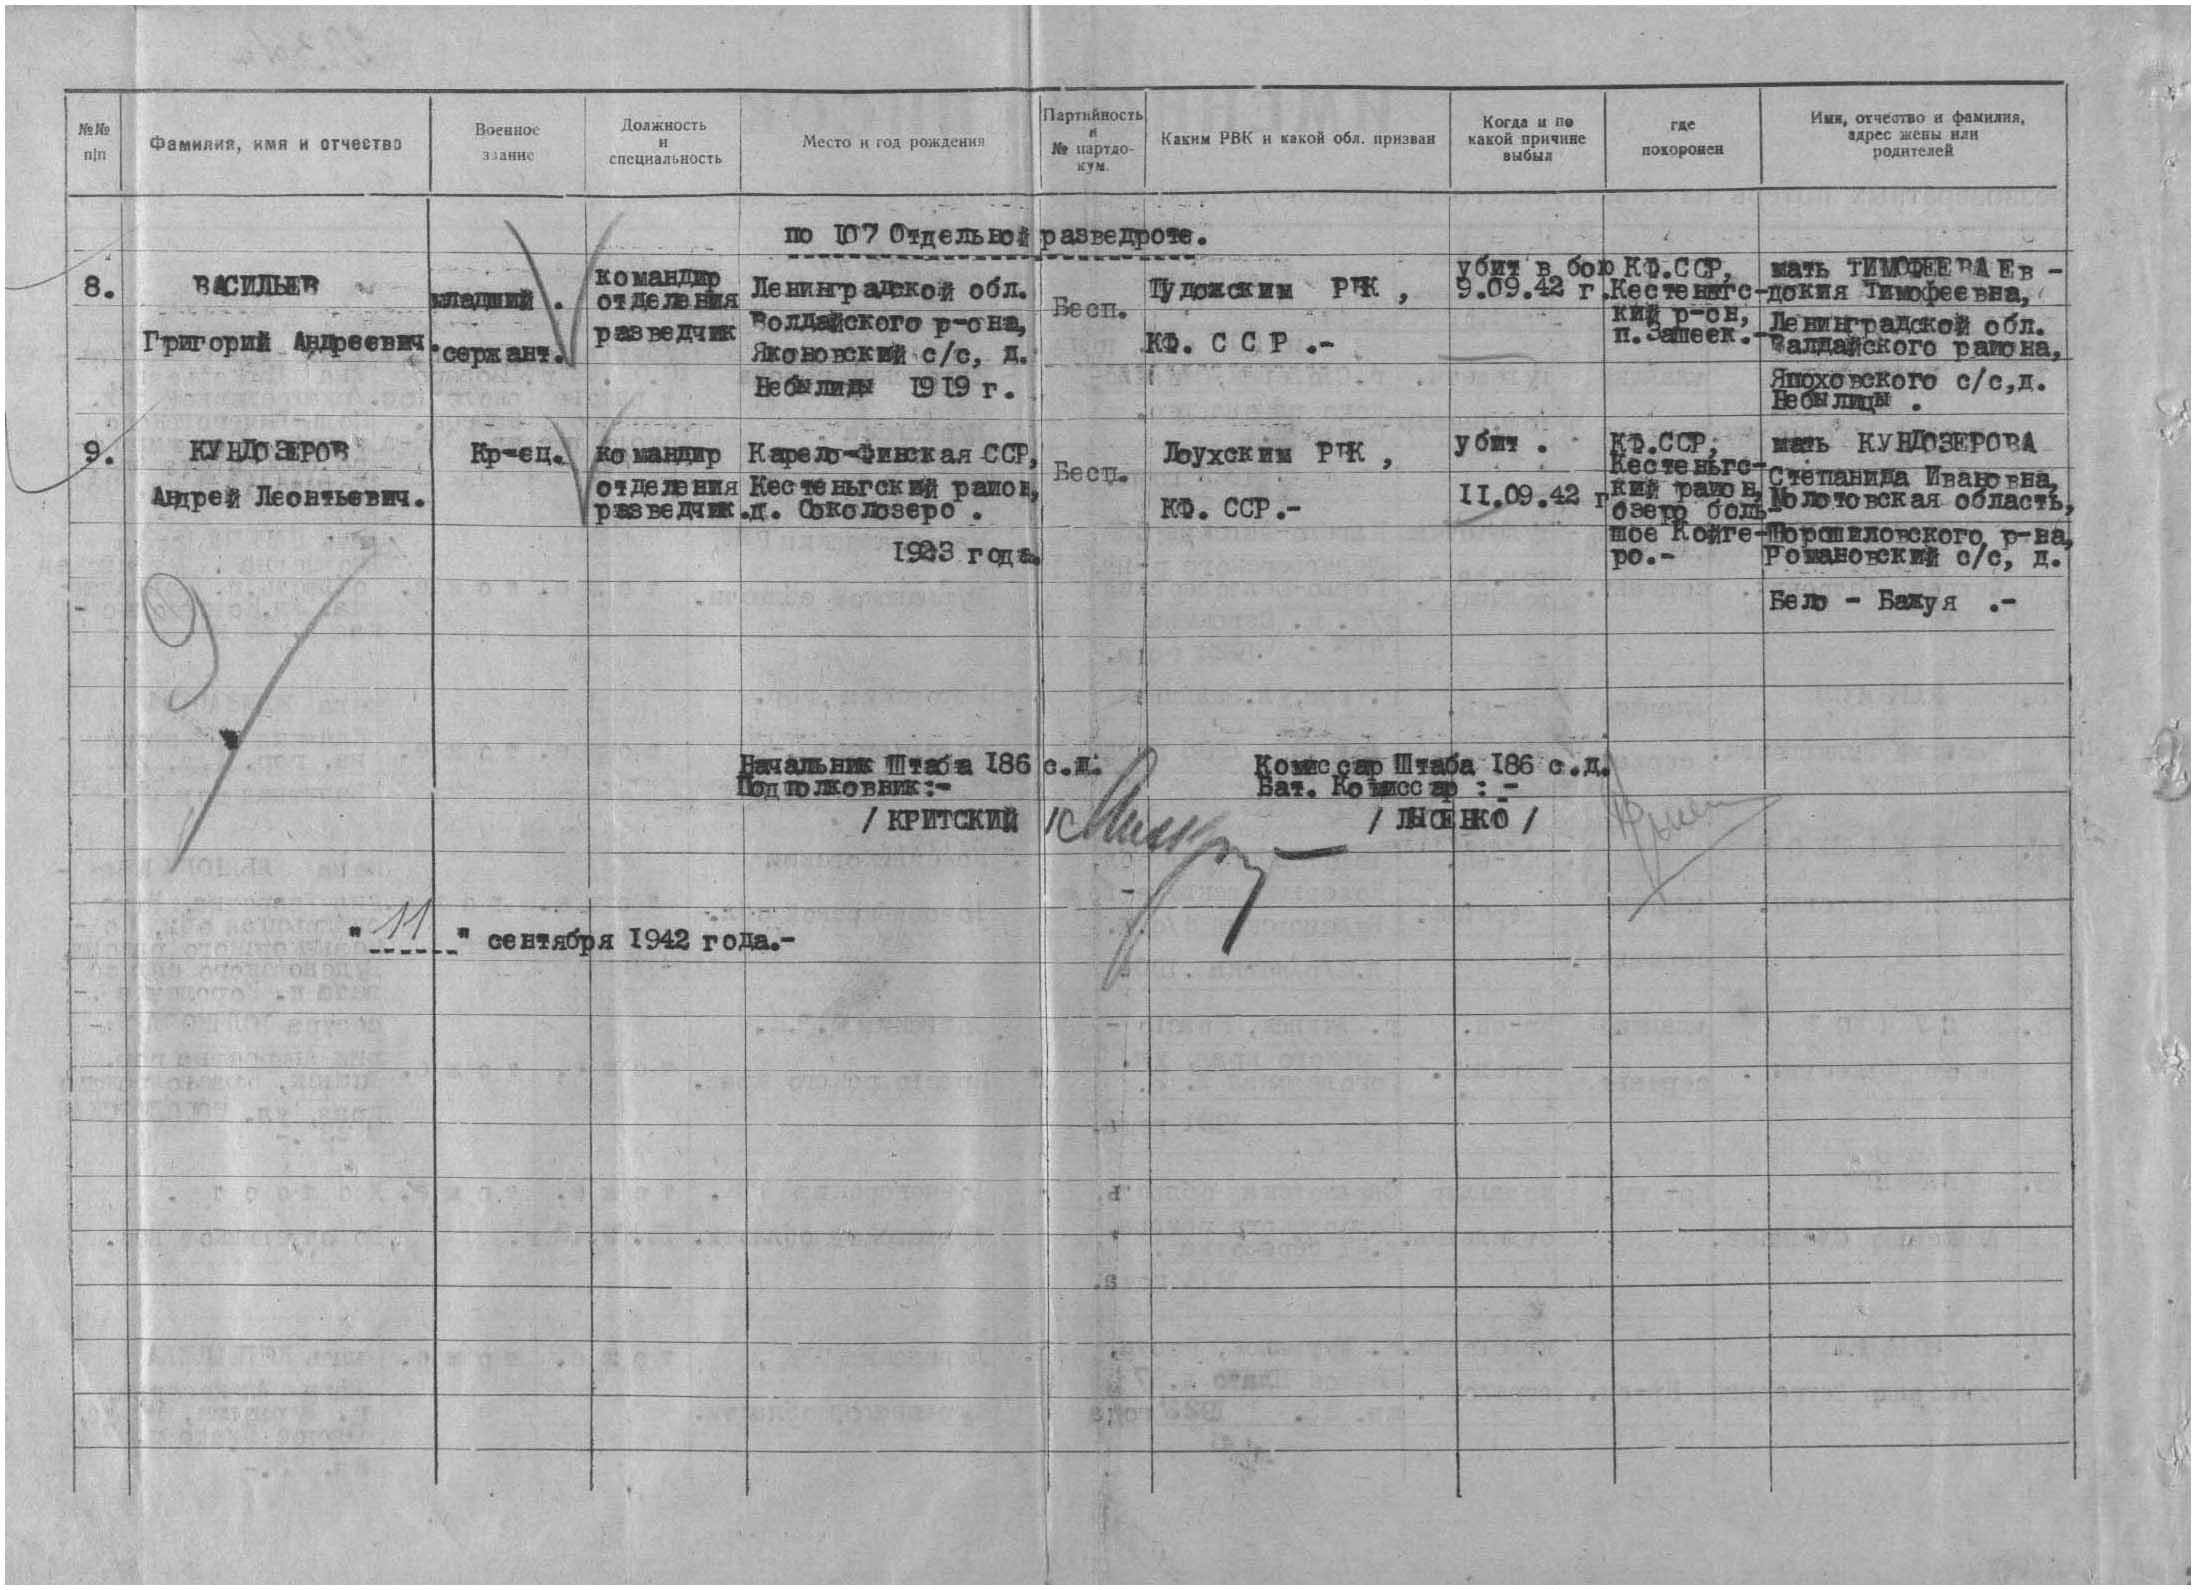 №№ п|п
Фамилия, имя и отчество
Военное звание
Должность и специальность
Место и год рождения
Партийность и № партдо-кум.
Каким РВК и какой обл. призван
Когда и по какой причине выбыл
где похоронен
Имя, отчество и фамилия, адрес жены или родителей
по 107 Отдельной разведроте.
8.
ВАСИЛЬЕВ
Григорий Андреевич.
младший
сержант.
командир
отделения
разведчик
Ленинградской обл.
Волдайского р-она,
Яконовский с/с, д.
Небылицы 1919 г.
Бесп.
Пудожским РВК,
КФ. С С Р .-
убит в бою
9.09.42 г.
КФ.ССР,
Кестеньгс-
кий р-он,
п.Зашеек.-
мать ТИМОФЕЕВА Ев -
докия Тимофеевна,
Ленинградской обл.
Валдайского района,
Япоховского с/с,д.
Небылицы .
9.
КУНДОЗЕРОВ
Андрей Леонтьевич.
Кр-ец.
командир
отделения
разведчик.
Карело-Финская ССР,
Кестеньгский район,
д. Соколозеро .
1923 года.
Бесп.
Лоухским РВК ,
КФ. ССР.-
убит .
11.09.42 г
КФ.ССР,
Кестеньгс-
кий район,
озеро боль
шое Койге-
ро.-
мать КУНДОЗЕРОВА
Степанида Ивановна,
Молотовская область,
Ворошиловского р-на,
Романовский с/с, д.
Бело - Бажуя .-
9
Начальник Штаба 186 с.д.
Подполковник:-
/ КРИТСКИЙ
Комиссар Штаба 186 с.д.
Бат. Комиссар : -
/ ЛЫСЕНКО /
" 11 " сентября 1942 года.-